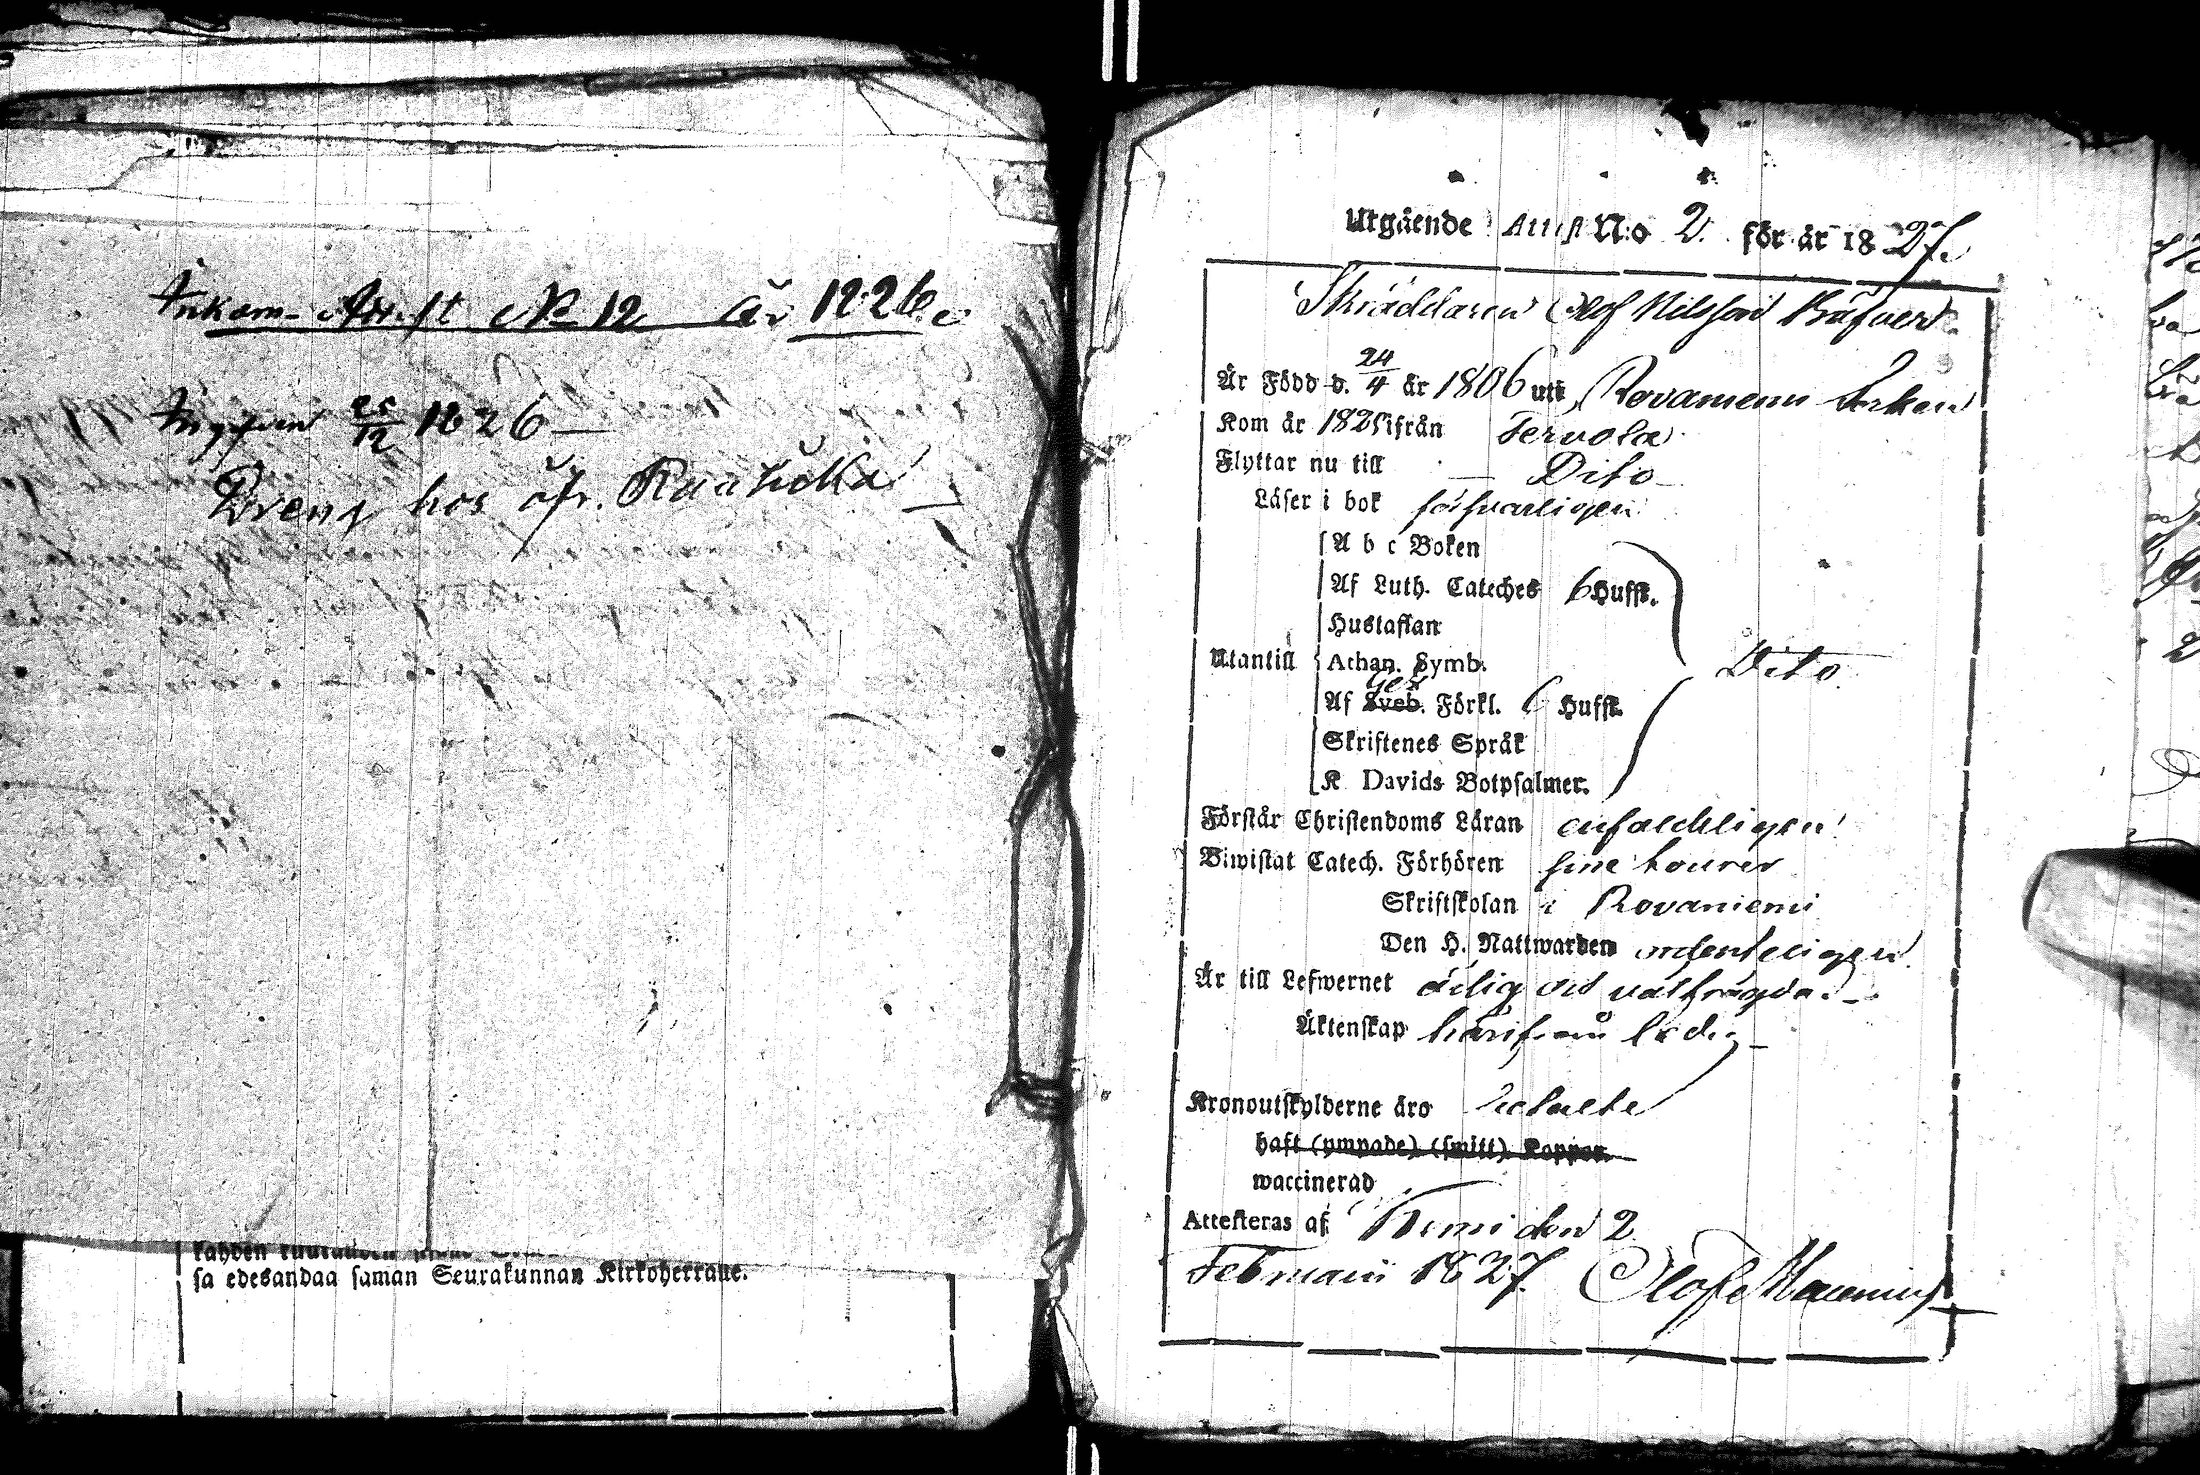 Inkom- Attest No 12 År 1826.
Ingifven 25/12 1826
Dreng hos öfr.
sa edesandaa saman Seurakunnan Kirkoherralle.
Utgående Attest N:o 2. för år 1827.
Skräddaren Olof Nilsson
Är Född d. 24/4 år 1806 uti Rovaniemi Sokn
Kom år 1825 ifrån Tervola
Flyttar nu till Dito
Läser i bok försvarligen
A b c Boken
Af Luth. Cateches 6 Hufst.
Hustaflan
Utantill Athan. Symb. Dito
Af Sveb. Förkl. 6 Hufst.
Skriftenes Språk
K Davids Botpsalmer.
Förstår Christendoms Läran enfaldeligen
Biwistat Catech. Förhören sine tourer
Skriftskolan i Rovaniemi
Den H. Nattwarden ordenteligen
Är till Lefwernet ärlig och välfrägda
Äktenskap härifrån ledig
Kronoutskylderne äro betalte
haft (ympade) (smitt) Koppor.
waccinerad
Attesteras af Kemi den 2
Februarii 1827. Olof